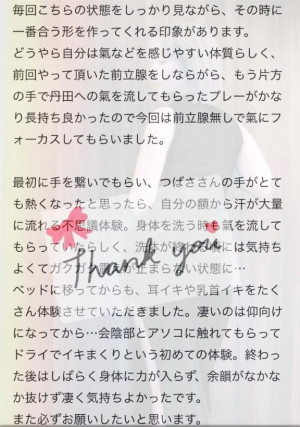 毎回こちらの状態をしっかり見ながら、その時に
一番合う形を作ってくれる印象があります。
どうやら自分は氣などを感じやすい体質らしく、
前回やって頂いた前立腺をしながらも、もう片方
の手で丹田への氣を流してもらったプレーがかな
り長持ち良かったので今回は前立腺無しで氣にフ
ォーカスしてもらいました。
最初に手を繋いでもらい、つばささんの手がとて
も熱くなったと思ったら、自分の額から汗が大量
に流れる不思議体験。身体を洗う時も氣を流して
もらっていたらしく、洗体が終わる頃には気持ち
よくてガクガク
が止まらない状態に…
Thank you
ベッドに移ってからも、耳イキや乳首イキをたく
さん体験させていただきました。凄いのは仰向け
になってから…会陰部とアソコに触れてもらって
ドライでイキまくりという初めての体験。終わっ
た後はしばらく身体に力が入らず、余韻がなかな
か抜けず凄く気持ちよかったです。
また必ずお願いしたいと思います。